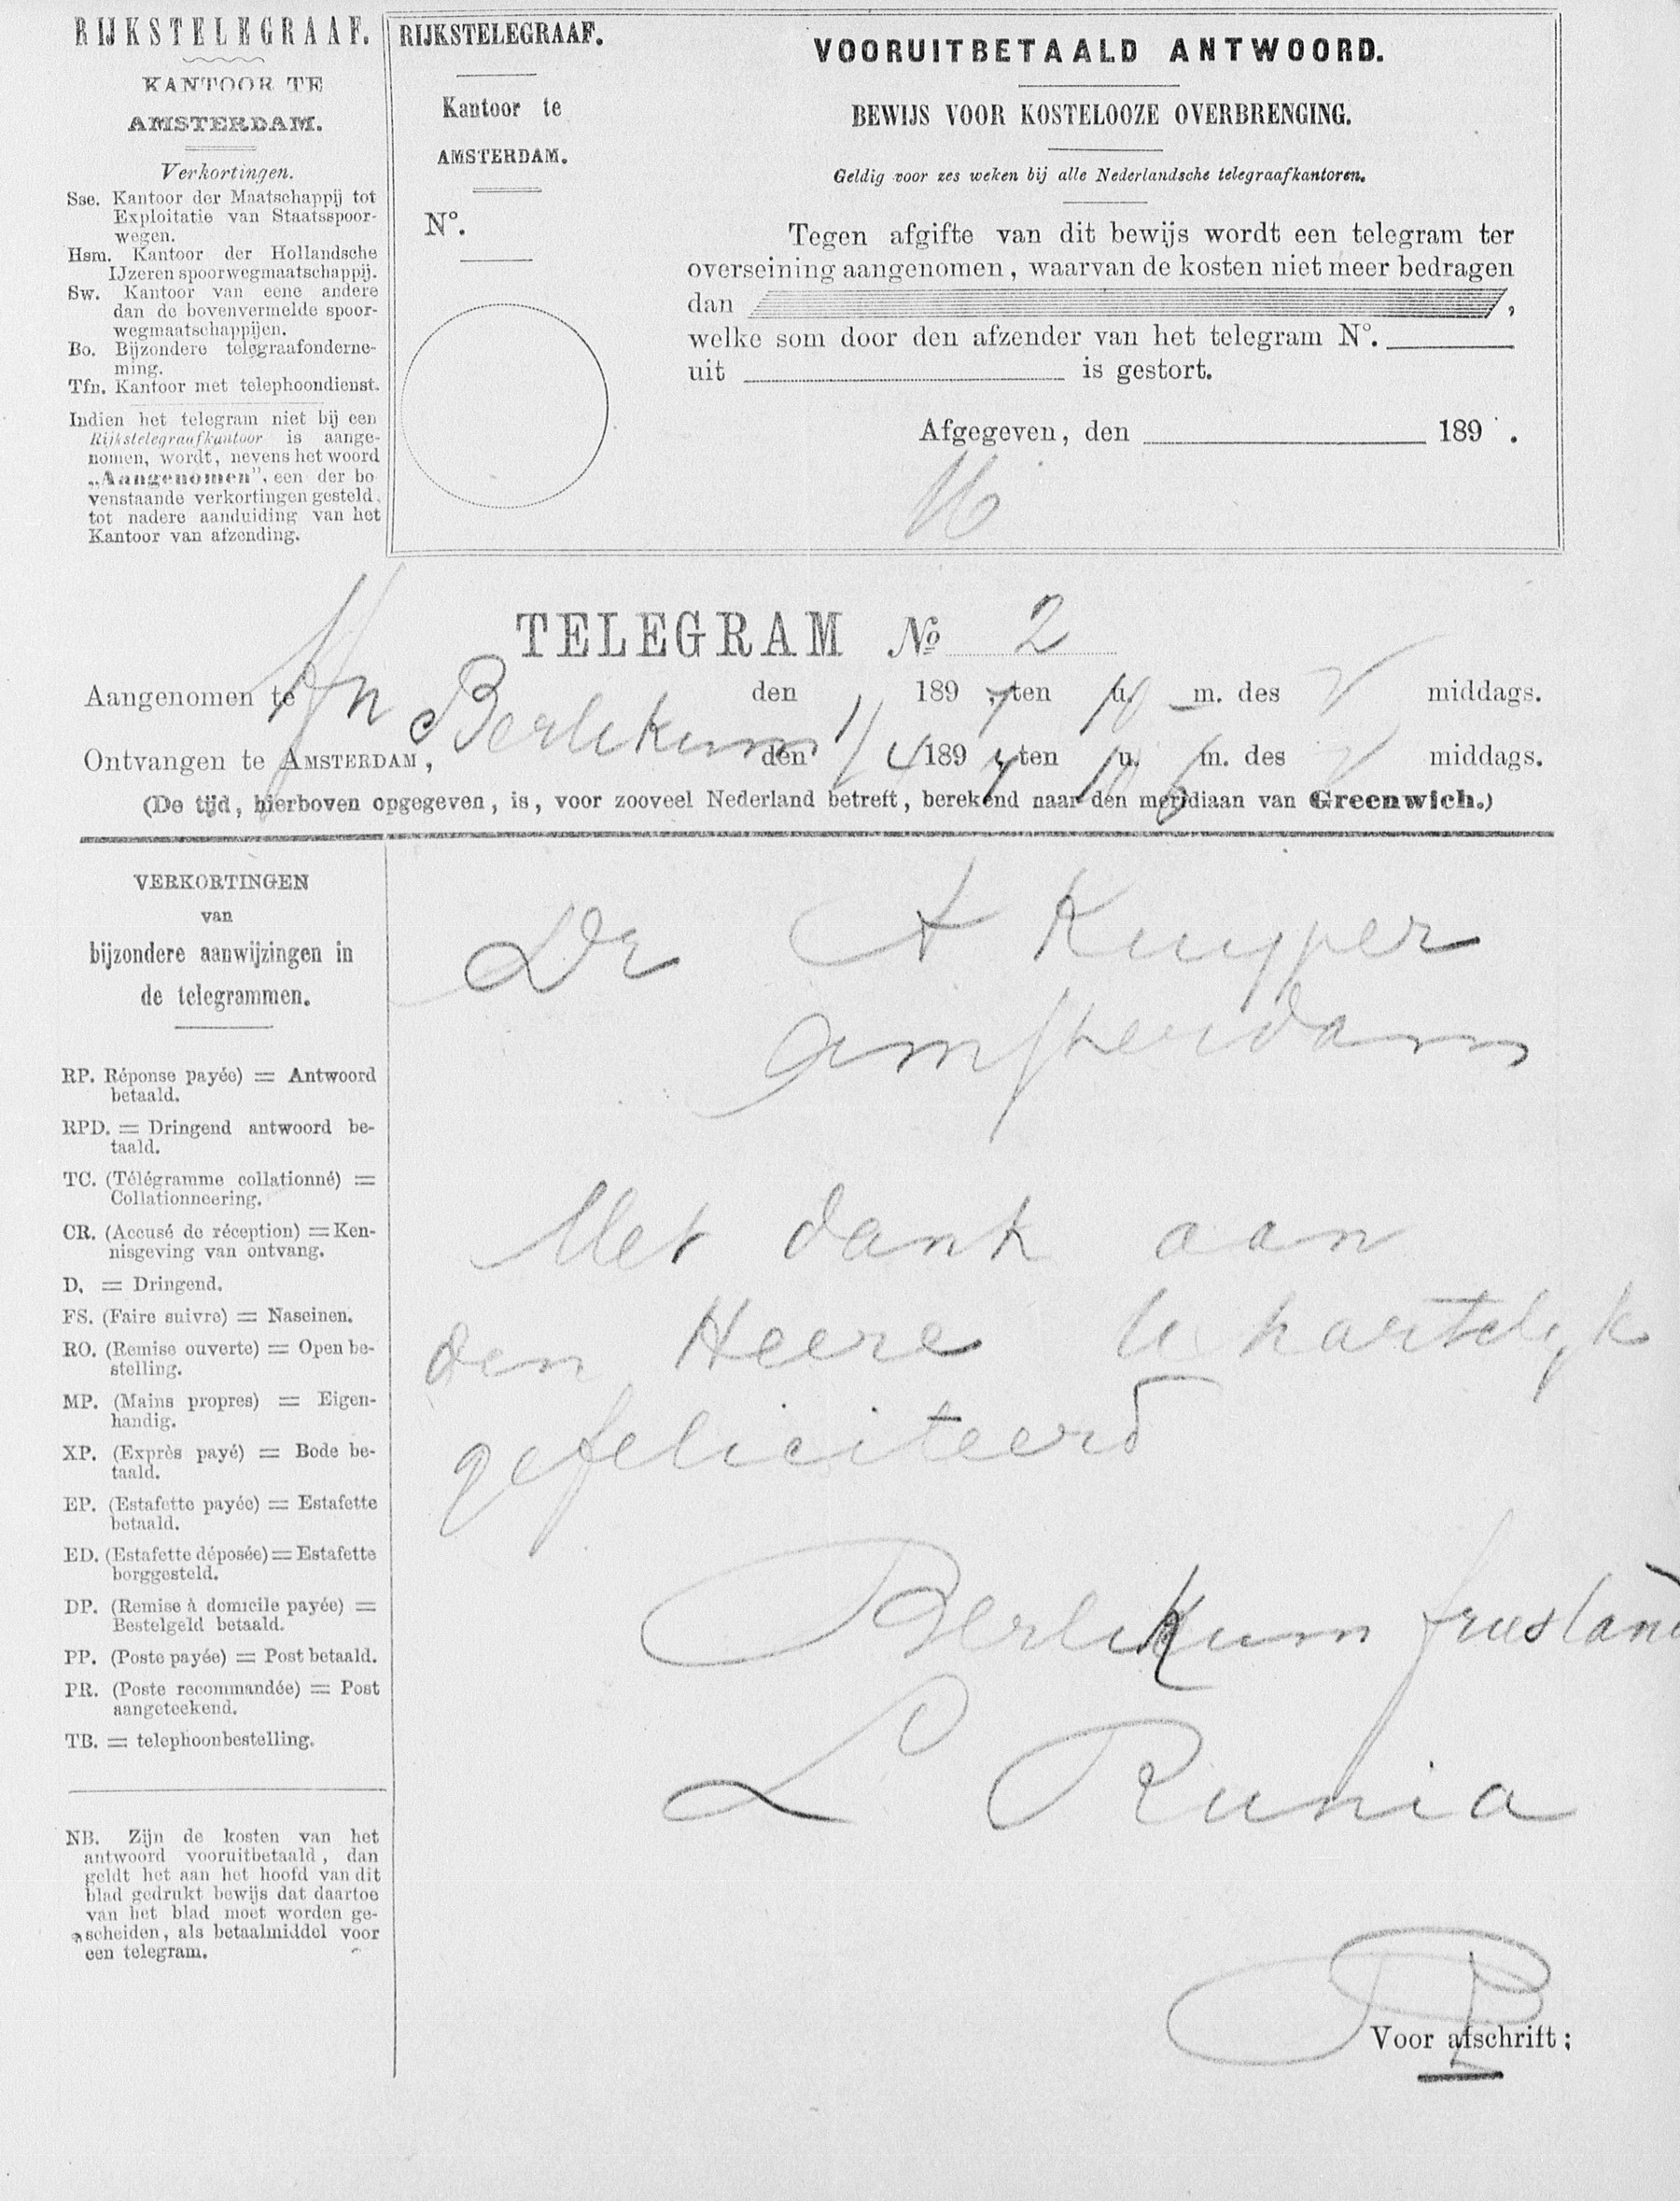 RIJKSTELEGRAAF.
KANTOOR TE
AMSTERDAM.
Verkortingen.
Sse. Kantoor der Maatschappij tot
Exploitatie van Staatsspoor-
wegen.
Hsm. Kantoor der Hollandsche
IJzeren spoorwegmaatschappij.
Sw. Kantoor van eene andere
dan de bovenvermelde spoor-
wegmaatschappijen.
Bo. Bijzondere telegraafonderne-
ming.
Tfn. Kantoor met telephoondienst.
Indien het telegram niet bij een
Rijkstelegraafkantoor is aange-
nomen, wordt, nevens het woord
„Aangenomen", een der bo
venstaande verkortingen gesteld,
tot nadere aanduiding van het
Kantoor van afzending.
RIJKSTELEGRAAF.
Kantoor te
AMSTERDAM.
N°.
VOORUITBETAALD ANTWOORD.
BEWIJS VOOR KOSTELOOZE OVERBRENGING.
Geldig voor zes weken bij alle Nederlandsche telegraafkantoren.
Tegen afgifte van dit bewijs wordt een telegram ter
overseining aangenomen, waarvan de kosten niet meer bedragen
dan ,
welke som door den afzender van het telegram N°.
uit is gestort.
Afgegeven, den 189 .
16
TELEGRAM No 2
Aangenomen te Tfn Berlikum den 189 7 ten 10 u. — m. des v middags.
Ontvangen te AMSTERDAM, den 1/4 189 7 ten 10 u. 6 m. des v middags.
(De tijd, hierboven opgegeven, is, voor zooveel Nederland betreft, berekend naar den meridiaan van Greenwich.)
VERKORTINGEN
van
bijzondere aanwijzingen in
de telegrammen.
RP. Réponse payée) = Antwoord
betaald.
RPD. = Dringend antwoord be-
taald.
TC. (Télégramme collationné) =
Collationneering.
CR. (Accusé de réception) = Ken-
nisgeving van ontvang.
D. = Dringend.
FS. (Faire suivre) = Naseinen.
RO. (Remise ouverte) = Open be-
stelling.
MP. (Mains propres) = Eigen-
handig.
XP. (Exprès payé) = Bode be-
taald.
EP. (Estafette payée) = Estafette
betaald.
ED. (Estafette déposée) = Estafette
borggesteld.
DP. (Remise à domicile payée) =
Bestelgeld betaald.
PP. (Poste payée) = Post betaald.
PR. (Poste recommandée) = Post
aangeteekend.
TB. = telephoonbestelling.
NB. Zijn de kosten van het
antwoord vooruitbetaald, dan
geldt het aan het hoofd van dit
blad gedrukt bewijs dat daartoe
van het blad moet worden ge-
scheiden, als betaalmiddel voor
een telegram.
Dr A Kuyper
Amsterdam
Met dank aan
den Heere U hartelijk
gefeliciteerd
Berlikum friesland
L Runia
Voor afschrift: